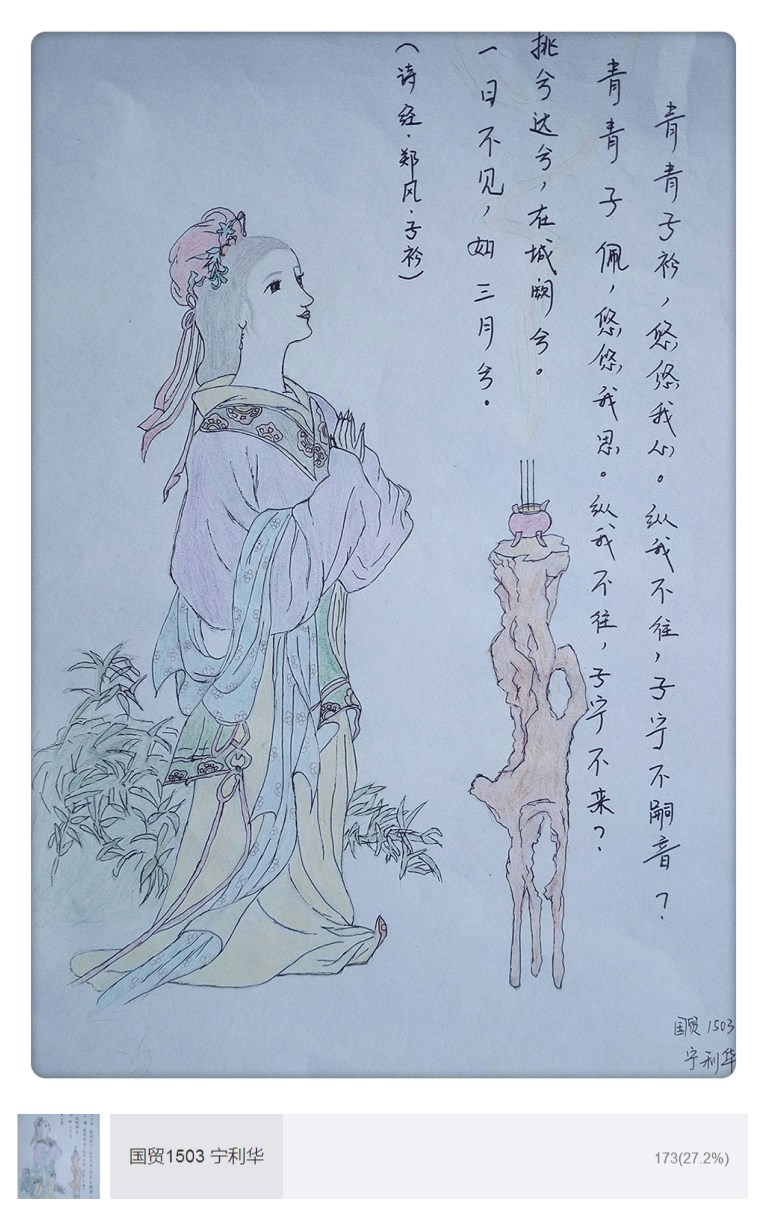 青青子衿，悠悠我心。纵我不往，子宁不嗣音？
青青子佩，悠悠我思。纵我不往，子宁不来？
挑兮达兮，在城阙兮。
一日不见，如三月兮。
（诗经·郑风·子衿）
国贸1503
宁利华
国贸1503 宁利华
173(27.2%)